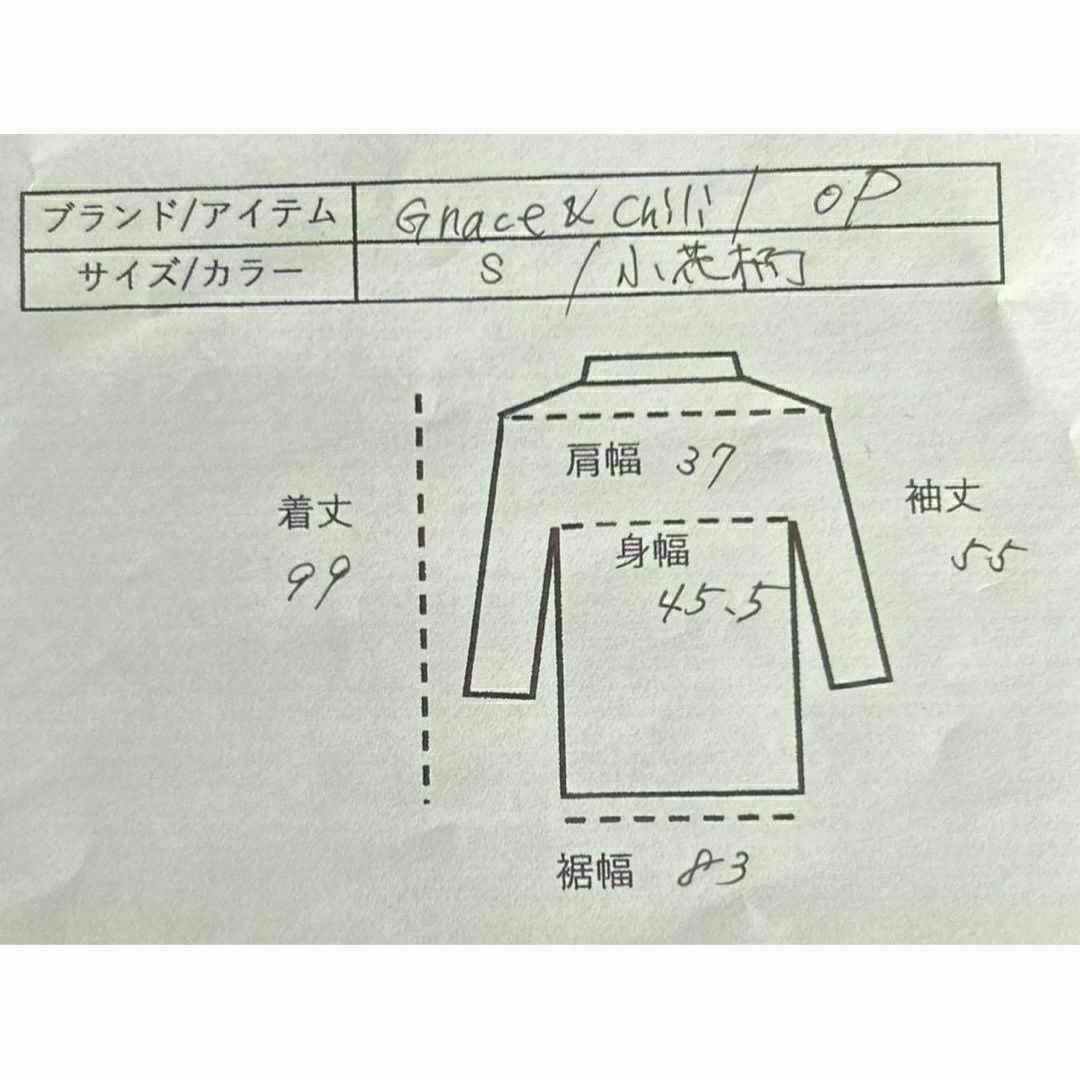 ブランド/アイテム Gnace & Chili / OP
サイズ/カラー S / 小花柄
肩幅 37
着丈
99
袖丈
55
身幅
45.5
裾幅 83